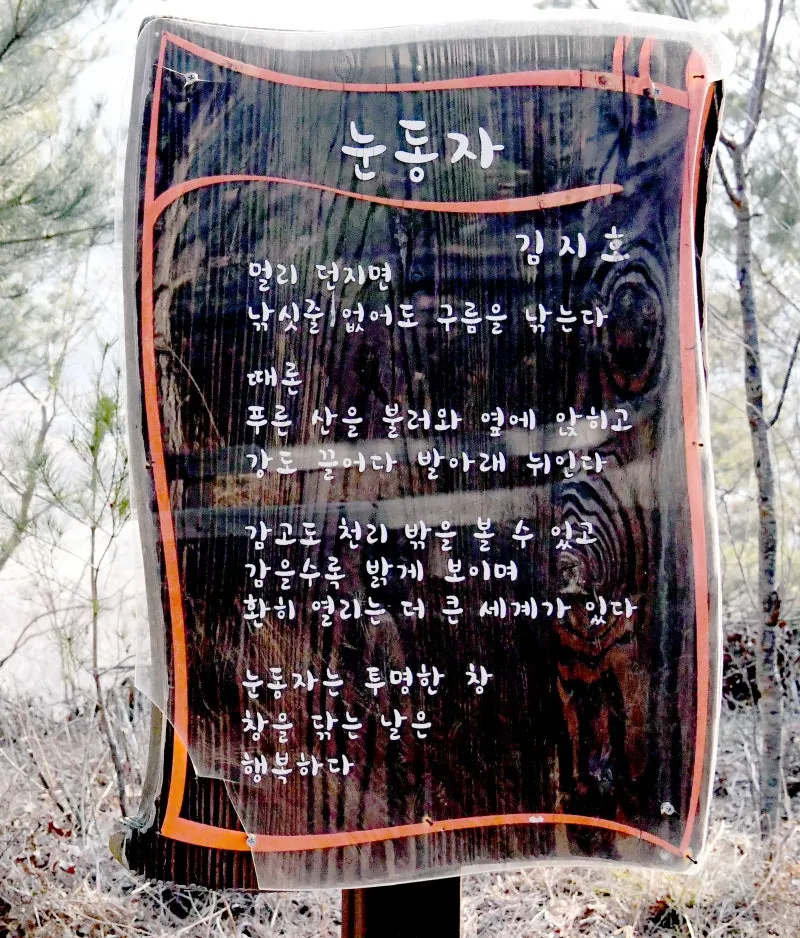 눈동자
김지호
멀리 던지면
낚싯줄 없어도 구름을 낚는다
때론
푸른 산을 불러와 옆에 앉히고
강도 끌어다 발아래 뉘인다
감고도 천리 밖을 볼 수 있고
감을수록 밝게 보이며
환히 열리는 더 큰 세계가 있다
눈동자는 투명한 창
창을 닦는 날은
행복하다